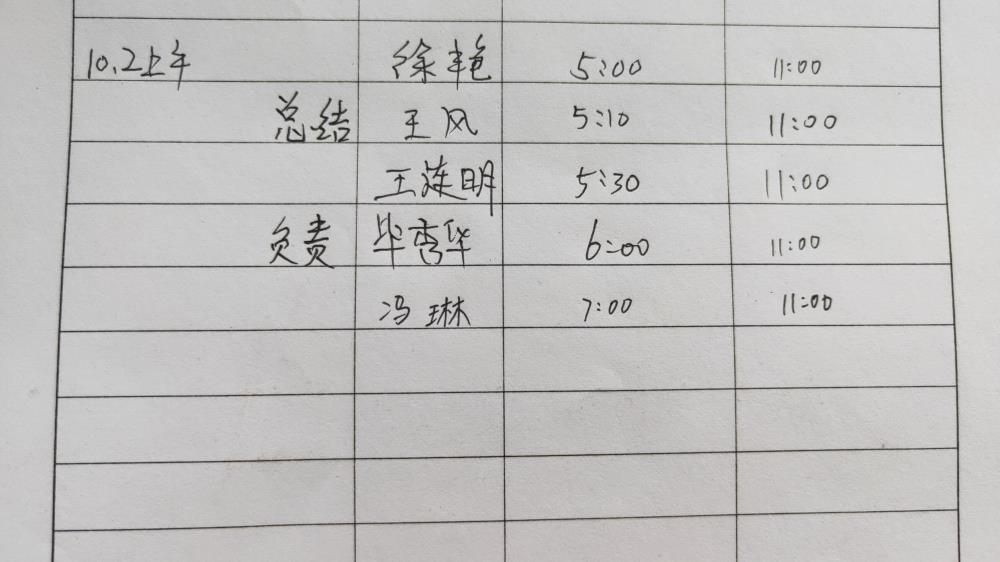 10.2上午 徐艳 5:00 11:00
总结 王风 5:10 11:00
王莲明 5:30 11:00
负责 毕秀华 6:00 11:00
冯琳 7:00 11:00